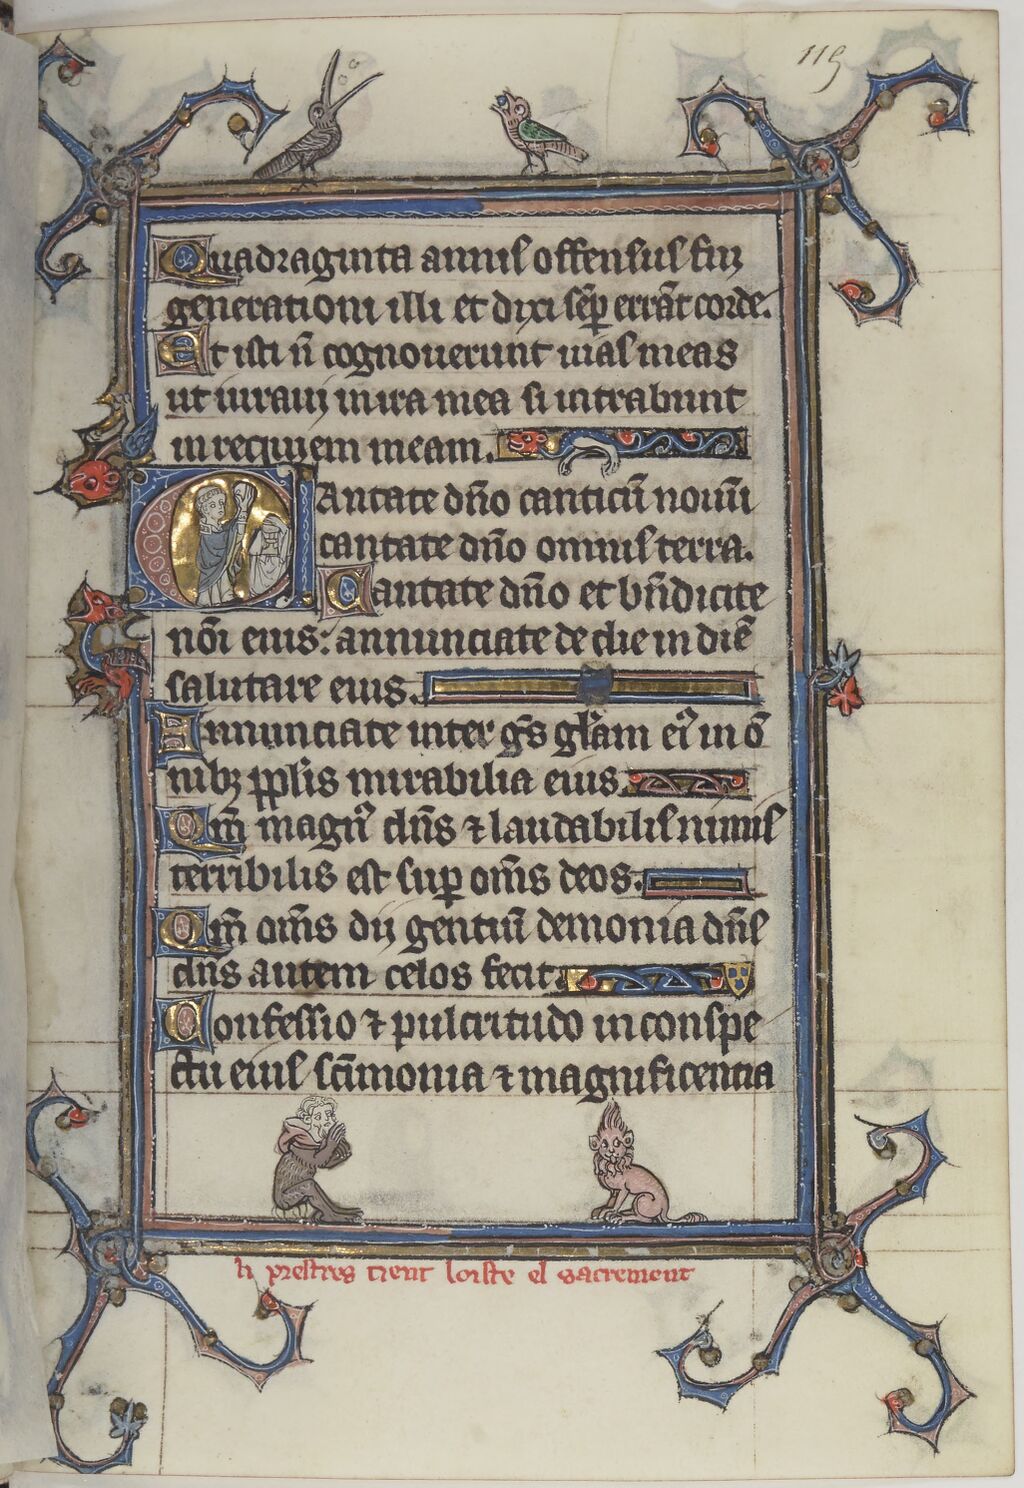 115
Quadraginta annis offensus fui
generationi illi et dixi semꝑ errāt corde.
Et isti n̄ cognouerunt uias meas
ut iuraui in ira mea si intrabunt
in requiem meam.
Cantate dn̄o canticū nouū
cantate dn̄o omnis terra.
Cantate dn̄o et bn̄dicite
nōi eius: annunciate de die in diē
salutare eius.
Annunciate inter gn̄s glām eiꝰ in ō
nibꝫ ppl̄is mirabilia eius.
Qm̄ magnꝰ dn̄s ⁊ laudabilis nimis
terribilis est suꝑ om̄s deos.
Qm̄ om̄s dij gentiū demonia dn̄s
dn̄s autem celos fecit.
Confessio ⁊ pulcritudo in conspe
ctu eius sc̄imonia ⁊ magnificentia
li prestres tient loiste el sacrement